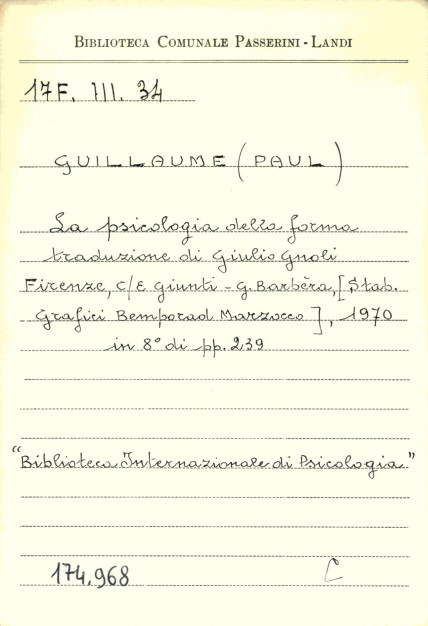 BIBLIOTECA COMUNALE PASSERINI-LANDI
17F. III. 34
GUILLAUME (PAUL)
La psicologia della forma
traduzione di Giulio Gnoli
Firenze, C/E Giunti - G. Barbèra, [Stab.
Grafici Bemporad Marzocco], 1970
in 8° di pp. 239
"Biblioteca Internazionale di Psicologia"
174.968 C